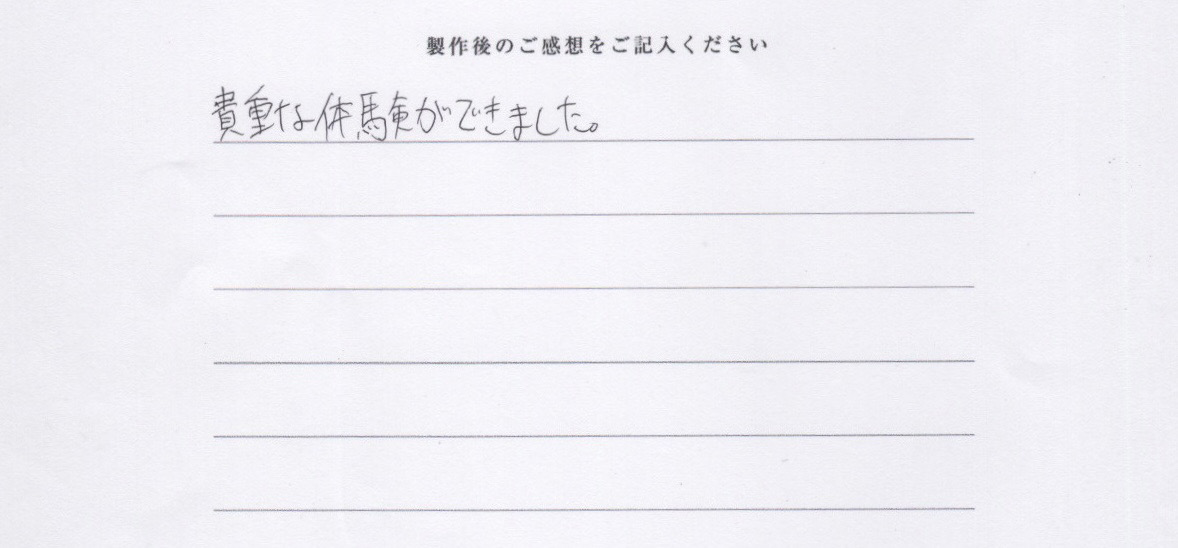 製作後のご感想をご記入ください
貴重な体験ができました。